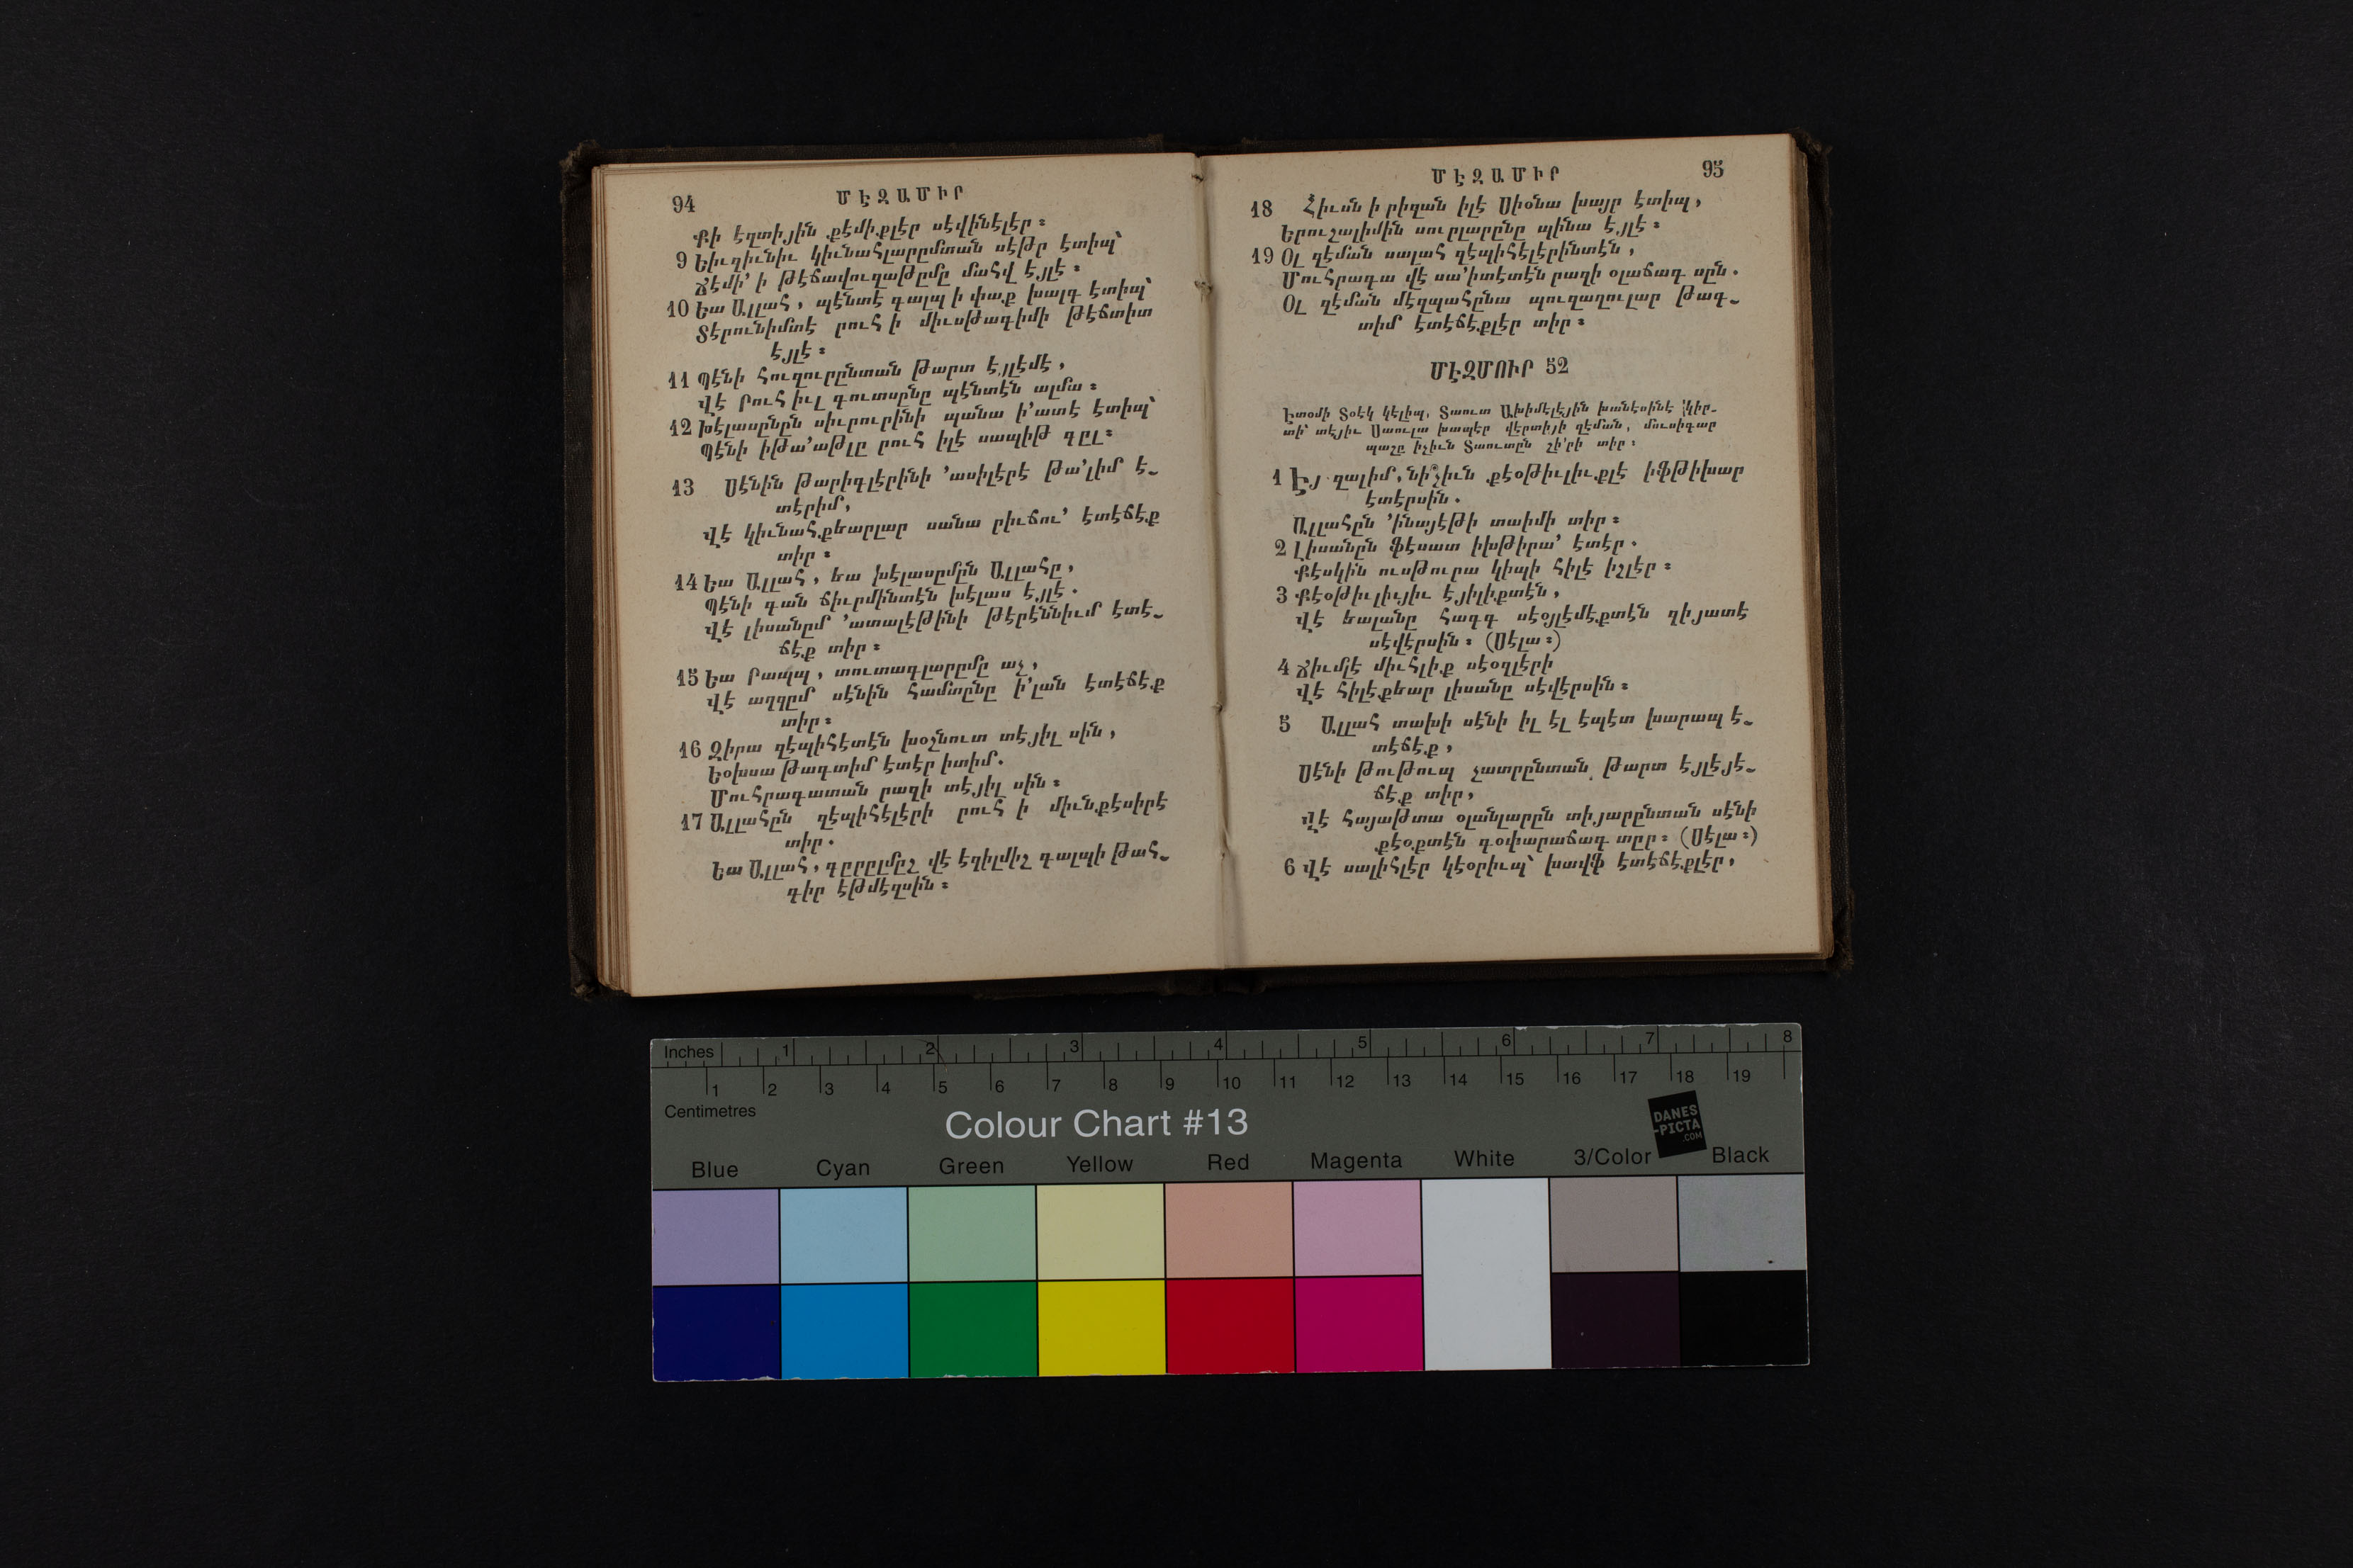 94
ՄԷԶԱՄԻՐ
Քի էզտիյին քէմիքլէր սէվինէլէր։
9 Եիւզիւնիւ կիւնահլարըմտան սէթր էտիպ՝
Ճէմի՛ ի թէճավուզաթըմը մահվ էյլէ։
10 Եա Ալլահ, պէնտէ գալպ ի փաք խալգ էտիպ՝
Տէրունիմտէ րուհ ի միւսթագիմի թէճտիտ
էյլէ։
11 Պէնի հուզուրընտան թարտ էյլէմէ,
Վէ Րուհ իւլ գուտսընը պէնտէն ալմա։
12 Խէլասընըն սիւրուրինի պանա ի՛ատէ էտիպ՝
Պէնի իթա՛աթլը րուհ իլէ սապիթ գըլ։
13 Սէնին թարիգլէրինի ՛ասիլէրէ թա՛լիմ է֊
տէրիմ,
Վէ կիւնահքեարլար սանա րիւճու՛ էտէճէք
տիր։
14 Եա Ալլահ, եա խէլասըմըն Ալլահը,
Պէնի գան ճիւրմինտէն խէլաս էյլէ.
Վէ լիսանըմ ՛ատալէթինի թէրէննիւմ էտէ֊
ճէք տիր։
15 Եա Րապպ, տուտագլարըմը աչ,
Վէ աղզըմ սէնին համտընը ի՛լան էտէճէք
տիր։
16 Զիրա զէպիհէտէն խօշնուտ տէյիլ սին,
Եօխսա թագտիմ էտէր իտիմ.
Մուհրագատան րազի տէյիլ սին։
17 Ալլահըն զէպիհէլէրի րուհ ի միւնքէսիրէ
տիր.
Եա Ալլահ, գըրըլմըշ վէ էզիլմիշ գալպի թահ֊
գիր էթմէզսին։
ՄԷԶԱՄԻՐ
95
18 Հիւսն ի րիզան իլէ Սիօնա խայր էտիպ,
Երուշալիմին սուրլարընը պինա էյլէ։
19 Օլ զէման սալահ զէպիհէլէրինտէն,
Մուհրագա վէ սա՛իտէտէն րազի օլաճագ սըն.
Օլ զէման մէզպահընա պուզաղուլար թագ֊
տիմ էտէճէքլէր տիր։
ՄԷԶՄՈՒՐ 52
Էտօմի Տօէկ կէլիպ, Տաուտ Ախիմէլէյին խանէսինէ կիր֊
տի՝ տէյիւ Սաուլա խապէր վէրտիյի զէման, մուսիգար
պաշը իչիւն Տաուտըն շի՛րի տիր։
1 Էյ զալիմ, նի՞չիւն քէօթիւլիւքլէ իֆթիխար
էտէրսին.
Ալլահըն ՛ինայէթի տաիմի տիր։
2 Լիսանըն ֆէսատ իխթիրա՛ էտէր.
Քէսկին ուսթուրա կիպի հիլէ իշլէր։
3 Քէօթիւլիւյիւ էյիլիքտէն,
Վէ եալանը հագգ սէօյլէմէքտէն զիյատէ
սէվէրսին։ (Սէլա։)
4 Ճիւմլէ միւհլիք սէօզլէրի
Վէ հիլէքեար լիսանը սէվէրսին։
5 Ալլահ տախի սէնի իլ էլ էպէտ խարապ է֊
տէճէք,
Սէնի թութուպ չատըրընտան թարտ էյլէյէ֊
ճէք տիր,
Վէ հայաթտա օլանլարըն տիյարընտան սէնի
քէօքտէն գօփարաճագ տըր։ (Սէլա։)
6 Վէ սալիհլէր կէօրիւպ՝ խավֆ էտէճէքլէր,
Inches 1 2 3 4 5 6 7 8
1 2 3 4 5 6 7 8 9 10 11 12 13 14 15 16 17 18 19
Centimetres
Colour Chart #13
DANES
-PICTA
.COM
Blue Cyan Green Yellow Red Magenta White 3/Color Black